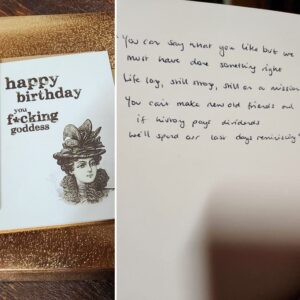 happy
birthday
you
f*cking
goddess
You can say what you like but we
must have done something right
Life long, still strong, still on a mission
You can't make new old friends and
if history pays dividends
We'll spend our last days reminiscing